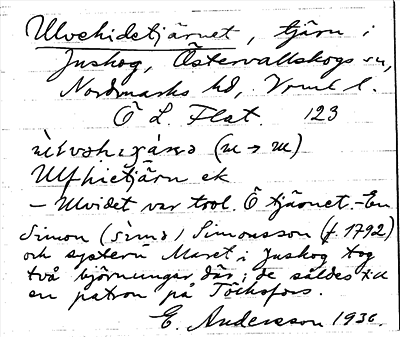 Ulvehidetjärnet, tjärn i
Juskog, Östervallskogs sn,
Nordmarks hd, Vrml l.
Ö L. Flat. 123
(u → u)
Ulfhietjärn ek
– Ulvidet var trol. Ö tjärnet. – En
Simon ( ) Simonsson (f. 1792)
och systern Maret i Juskog tog
två björnungar där; de såldes till
en patron på Töcksfors.
E. Andersson 1936.